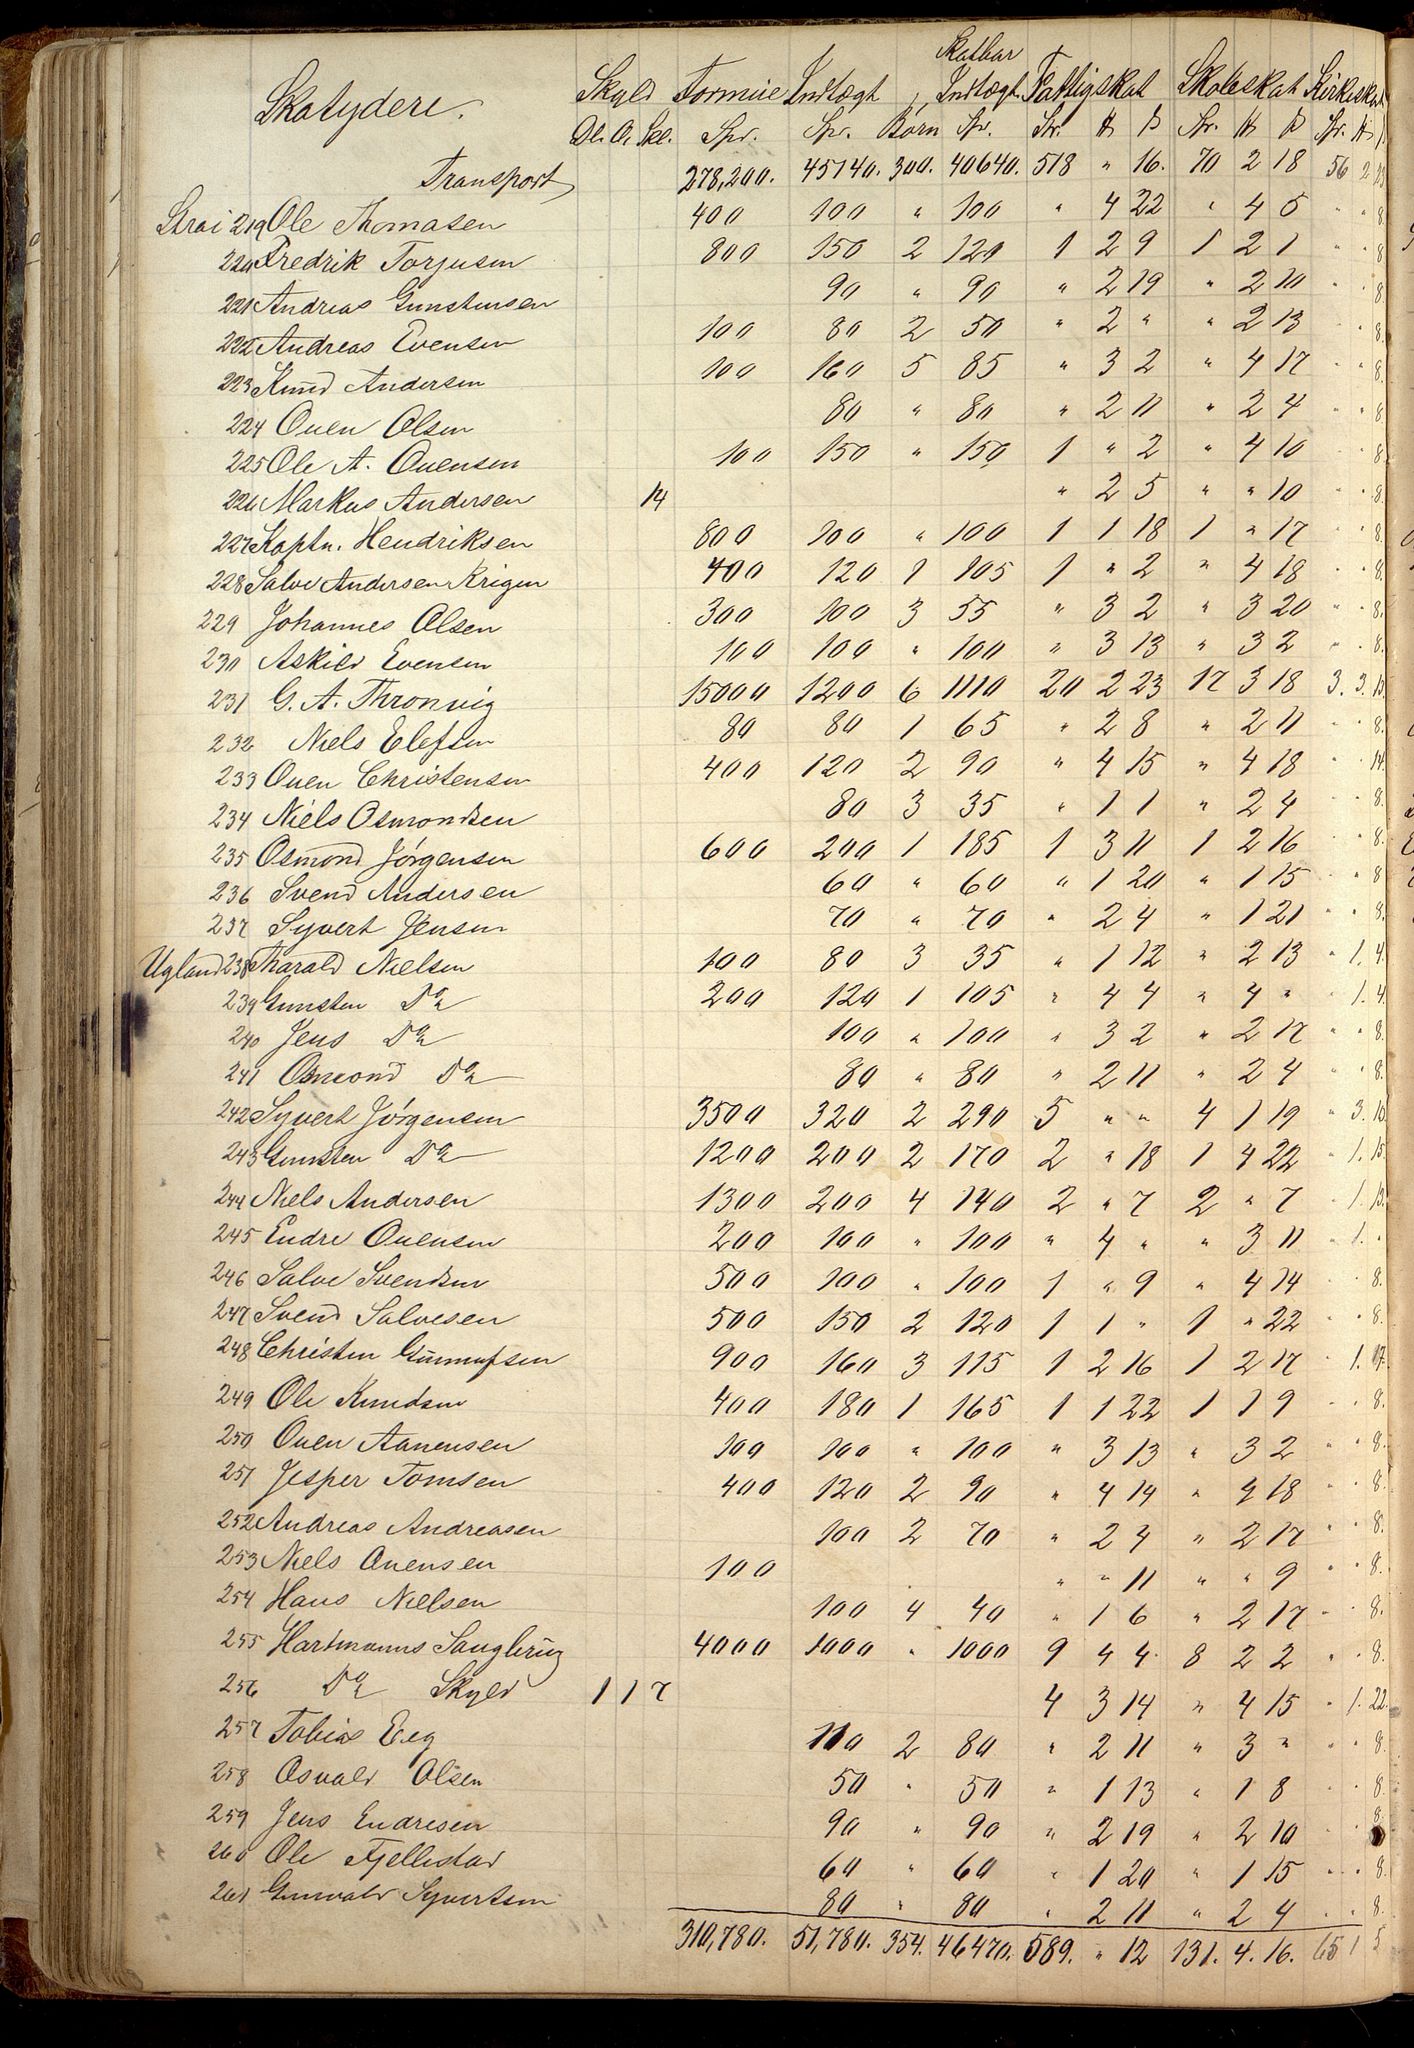 Skatydere. Skyld Formue Indtægt Børn Skatbar Indtægt Fattigskat Skoleskat Kirkeskat
Dl. O. Skl. Spr. Spr. Spr. Spr. # ß Spr. # ß Spr. #
Transport 278,200. 45140. 300. 40640. 518 " 16. 70 2 18 56 2 23
Strai 219 Ole Thomasen 400 100 " 100 " 4 22 " 4 5 " " 8
220 Fredrik Torjusen 800 150 2 120 1 2 9 1 2 1 " " 8
221 Andreas Gunstensen 90 " 90 " 2 19 " 2 10 " " 8
222 Andreas Evensen 100 80 2 50 " 2 " " 2 13 " " 8.
223 Knud Andersen 100 160 5 85 " 3 2 " 4 17 " " 8.
224 Ouen Olsen 80 " 80 " 2 11 " 2 4 " " 8
225 Ole A. Ouensen 100 150 " 150 1 " 2 " 4 10 " " 8.
226 Markus Andersen 14 " 2 5 " " 10 " " 8.
227 Kaptn. Hendriksen 800 100 " 100 1 1 18 1 " 17 " " 8.
228 Salve Andersen Krigen 400 120 1 105 1 " 2 " 4 18 " " 8.
229 Johannes Olsen 300 100 3 55 " 3 2 " 3 20 " " 8.
230 Askild Evensen 100 100 " 100 " 3 13 " 3 2 " " 8.
231 G. A. Thronvig 15000 1200 6 1110 20 2 23 17 3 18 3. 3. 13
232 Niels Elefsen 80 80 1 65 " 2 8 " 2 11 " " 8.
233 Ouen Christensen 400 120 2 90 " 4 15 " 4 18 " " 14.
234 Niels Osmondsen 80 3 35 " 1 1 " 2 4 " " 8.
235 Osmond Jørgensen 600 200 1 185 1 3 11 1 2 16 " " 8.
236 Svend Andersen 60 " 60 " 1 20 " 1 15 " " 8
237 Syvert Jensen 70 " 70 " 2 4 " 1 21 " " 8.
Ugland 238 Tharald Nielsen 100 80 3 35 " 1 12 " 2 13 " 1. 4.
239 Gunsten Do 200 120 1 105 " 4 4 " 4 " " 1. 4.
240 Jens Do 100 " 100 " 3 2 " 2 17 " " 8.
241 Osmond Do 80 " 80 " 2 11 " 2 4 " " 8.
242 Syvert Jørgensen 3500 320 2 290 5 " " 4 1 19 " 3. 10
243 Gunsten Do 1200 200 2 170 2 " 18 1 4 22 " 1. 15.
244 Niels Andersen 1300 200 4 140 2 " 7 2 " 7 " 1. 13.
245 Endre Ouensen 200 100 " 100 " 4 " " 3 11 " 1. "
246 Salve Svendsen 500 100 " 100 1 " 9 " 4 14 " " 8.
247 Svend Salvesen 500 150 2 120 1 1 " 1 " 22 " " 8.
248 Christen Gunnufsen 900 160 3 115 1 2 16 1 2 17 " 1. 17.
249 Ole Knudsen 400 180 1 165 1 1 22 1 1 9 " " 8.
250 Ouen Aanensen 100 100 " 100 " 3 13 " 3 2 " " 8.
251 Jesper Tomsen 400 120 2 90 " 4 14 " 4 18 " " 8.
252 Andreas Andreasen 100 2 70 " 2 4 " 2 17 " " 8.
253 Niels Ouensen 100 " " 11 " " 9 " " 8.
254 Hans Nielsen 100 4 40 " 1 6 " 2 17 " " 8.
255 Hartmanns Saugbrug 4000 1000 " 1000 9 4 4. 8 2 2 " " 8.
256 Do Skyld 1 1 7 4 3 14 " 4 15 " 1. 22.
257 Tobias Eeg 110 2 80 " 2 11 " 3 " " " 8.
258 Osvald Olsen 50 " 50 " 1 13 " 1 8 " " 8.
259 Jens Endresen 90 " 90 " 2 19 " 2 10 " " 8.
260 Ole Fjellestad 60 " 60 " 1 20 " 1 15 " " 8.
261 Gunvald Syvertsen 80 " 80 " 2 11 " 2 4 " " 8.
310,780. 51,780. 354. 46470. 589. " 12 131. 4. 16. 65 1 5